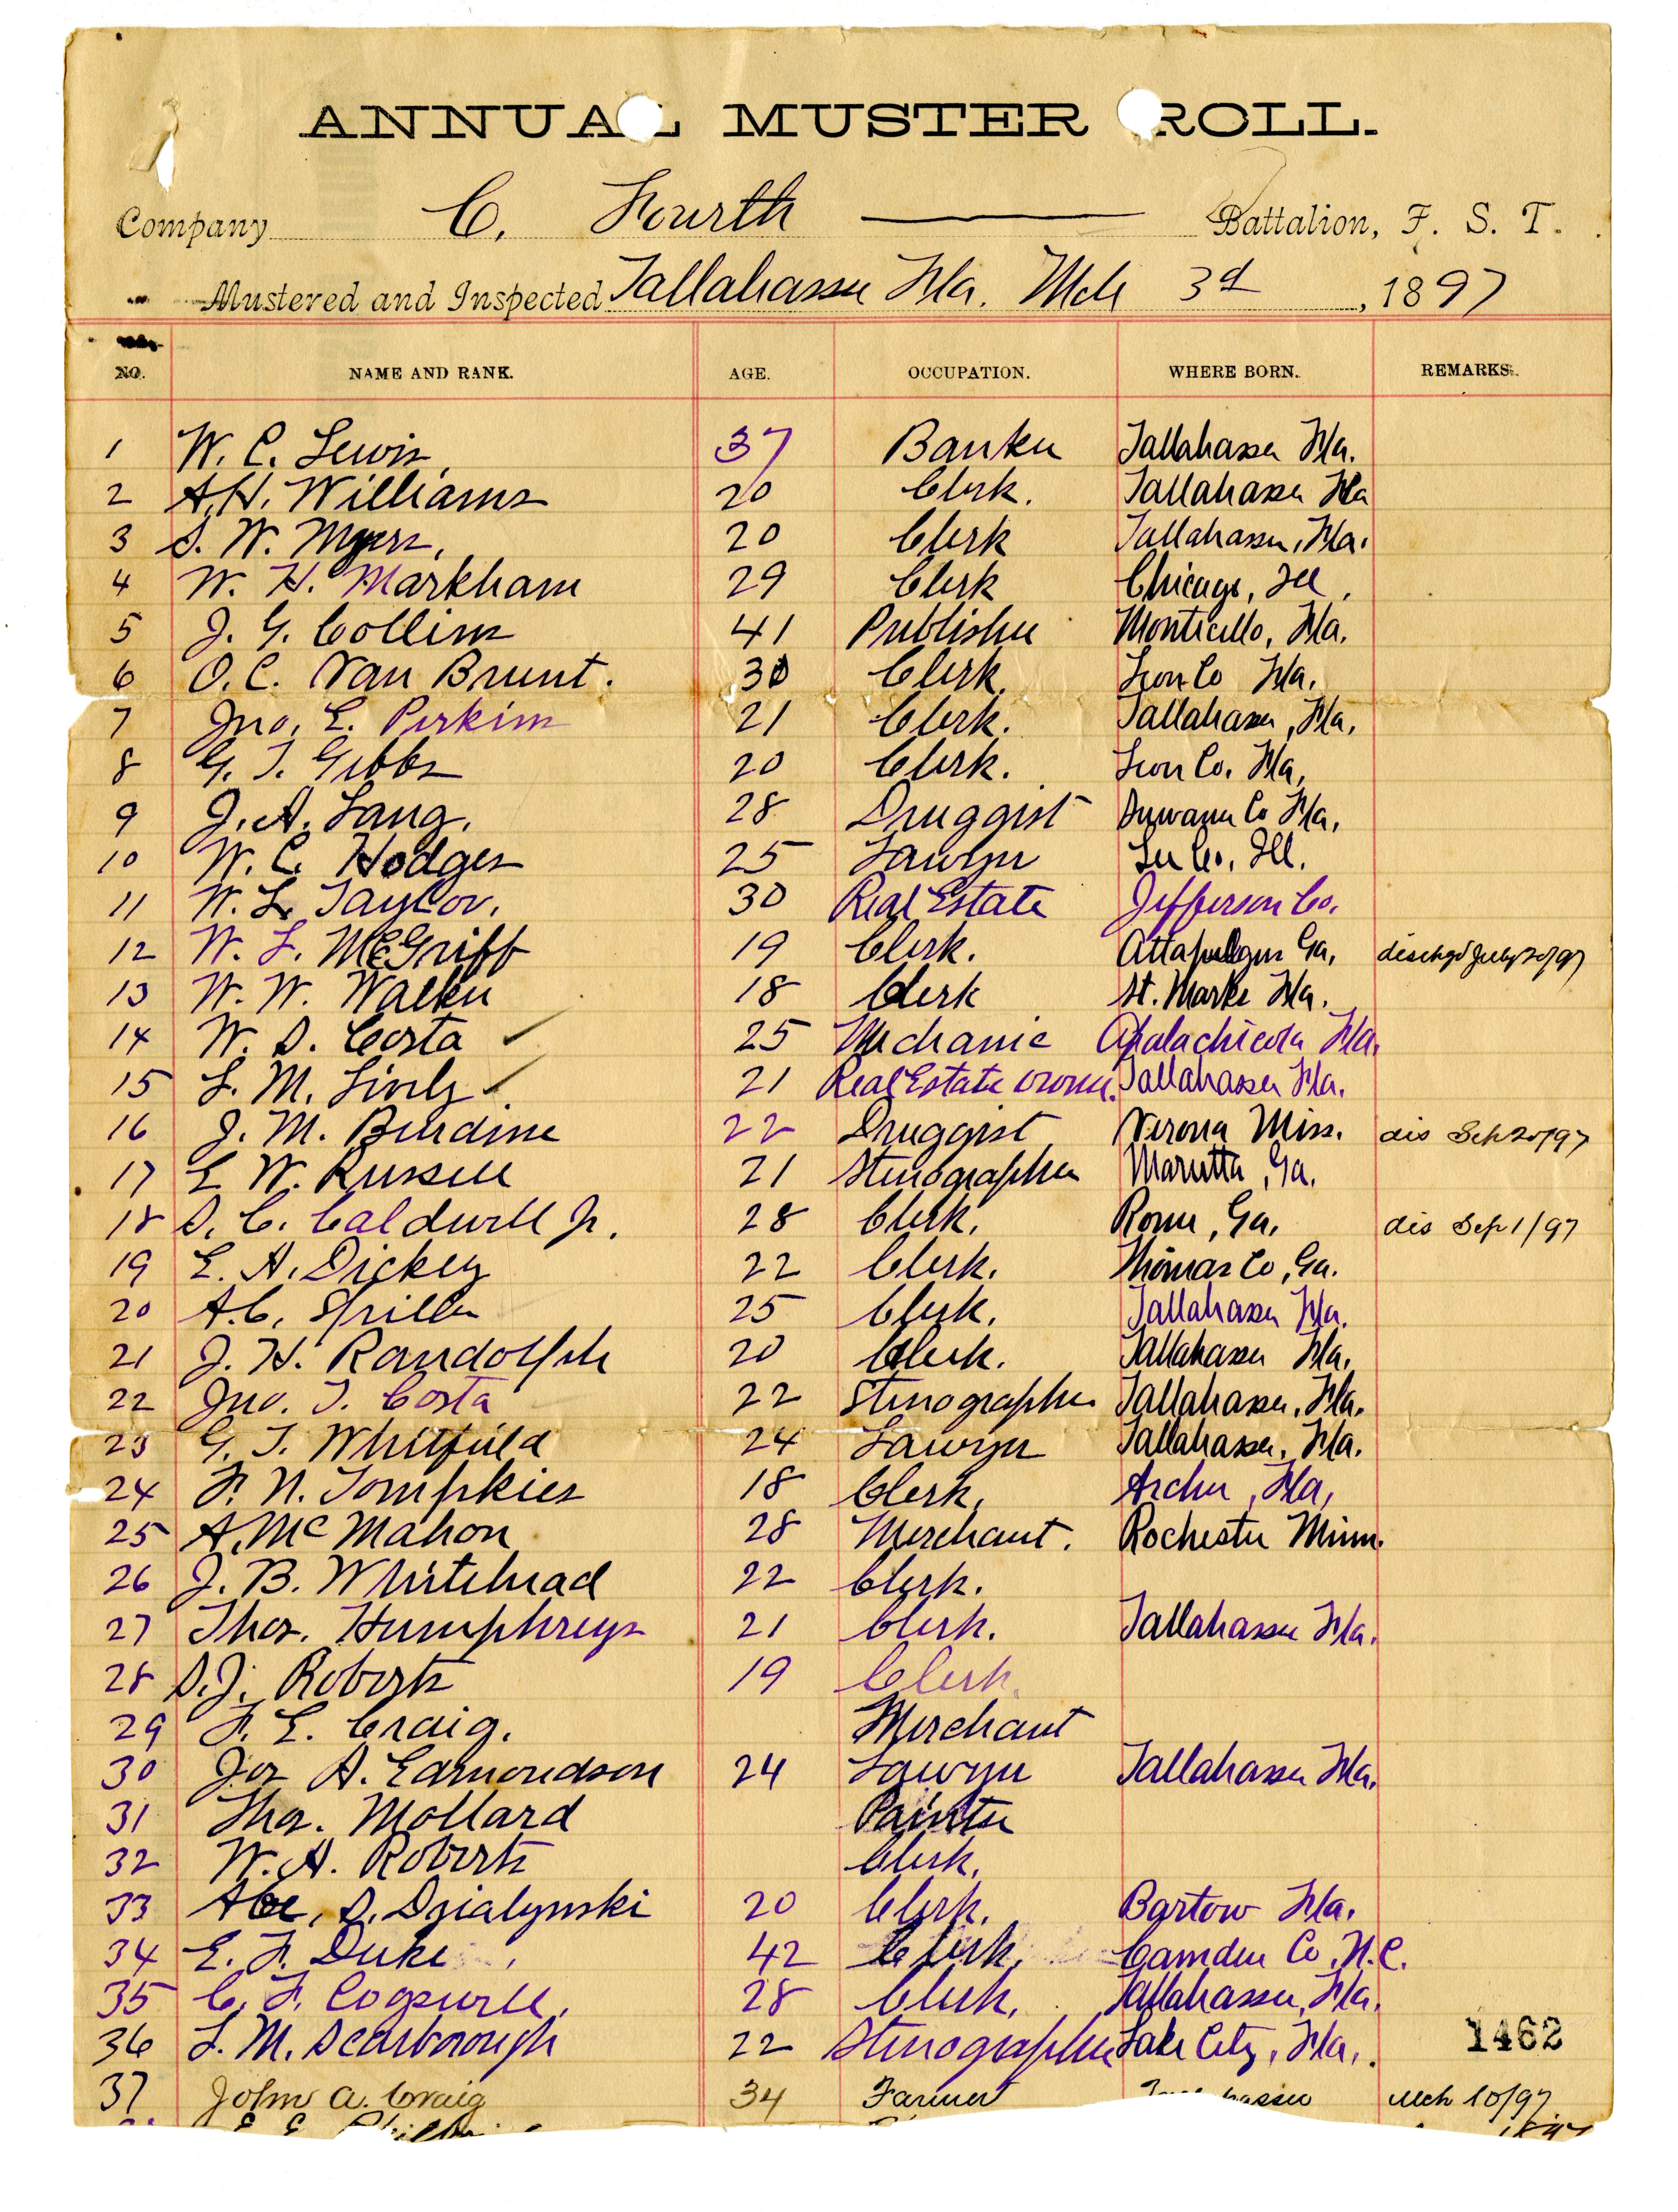 ANNUAL MUSTER ROLL.
Company C. Fourth Battalion, F. S. T.
Mustered and Inspected Tallahassee Fla. Mch 3d, 1897
NO. NAME AND RANK. AGE. OCCUPATION. WHERE BORN. REMARKS.
1 W. C. Lewis 37 Banker Tallahassee Fla.
2 A. H. Williams 20 Clerk. Tallahassee Fla
3 S. W. Myers, 20 Clerk Tallahassee, Fla.
4 W. H. Markham 29 Clerk Chicago, Ill,
5 J. G. Collins 41 Publisher Monticello, Fla.
6 O. C. Van Brunt. 30 Clerk, Leon Co Fla.
7 Jno. E. Perkins 21 Clerk. Tallahassee, Fla,
8 G. T. Gibbs 20 Clerk. Leon Co. Fla,
9 J. A. Lang, 28 Druggist Suwanee Co Fla,
10 W. C. Hodges 25 Lawyer Lee Co. Ill.
11 W. L. Taylor, 30 Real Estate Jefferson Co.
12 W. L. McGriff 19 Clerk. Attapulgus Ga, dischgd July 20/97
13 W. W. Walker 18 Clerk St. Marks Fla.
14 W. S. Costa 25 Mechanic Apalachicola Fla.
15 L. M. Lively 21 Real Estate owner. Tallahassee Fla.
16 J. M. Burdine 22 Druggist Verona Miss. dis Sep 20/97
17 E. W. Russell 21 Stenographer Marietta, Ga.
18 S. C. Caldwell Jr. 28 Clerk, Rome, Ga, dis Sep 1/97
19 E. A. Dickey 22 Clerk. Thomas Co, Ga.
20 A. C. Spiller 25 Clerk, Tallahassee Fla.
21 J. H. Randolph 20 Clerk. Tallahassee Fla,
22 Jno. T. Costa 22 Stenographer Tallahassee, Fla.
23 G. T. Whitfield 24 Lawyer Tallahassee, Fla.
24 F. N. Tompkies 18 Clerk, Archer, Fla,
25 A. McMahon 28 Merchant. Rochester Minn.
26 J. B. Whitehead 22 Clerk.
27 Thos. Humphreys 21 Clerk. Tallahassee Fla.
28 S. J. Roberts 19 Clerk.
29 F. E. Craig. Merchant
30 Jos A. Edmondson 24 Lawyer Tallahassee Fla.
31 Thos. Mollard Painter
32 W. A. Roberts Clerk,
33 Abe, S. Dzialynski 20 Clerk, Bartow Fla.
34 E. F. Duke 42 Clerk, Camden Co. N.C.
35 C. F. Cogswell, 28 Clerk, Tallahassee, Fla.
36 L. M. Scarborough 22 Stenographer Lake City, Fla,.
1462
37 John A. Craig 34 Farmer Mch 10/97